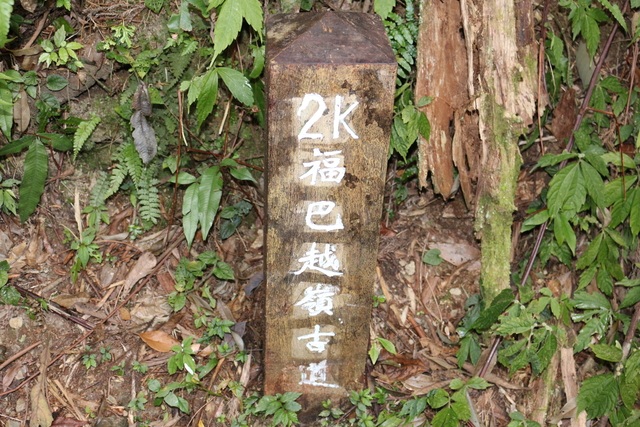 2K
福巴越嶺古道